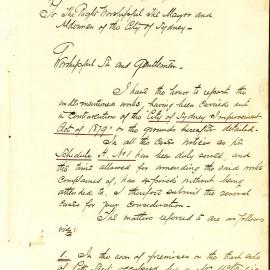 To The Right Worshipful The Mayor and
Aldermen of the City of Sydney—
Worshipful Sir and Gentlemen—
I have the honor to report the
undermentioned works, having been carried out
in contravention of the "City of Sydney Improvement
Act of 1879" on the grounds hereafter detailed—
In all the cases notices as per
Schedule A. No 1 has been duly served, and
the time allowed for amending the said works
complained of, has expired without being
attended to, I therefore submit the several
cases for your consideration—
The matters referred to are as follows
viz:
1. In the case of premises on the East side
of Pitt Street occupied by